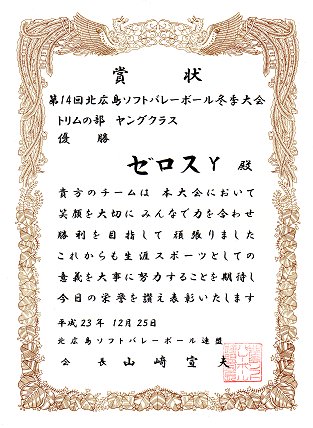 賞 状
第14回北広島ソフトバレーボール冬季大会
トリムの部 ヤングクラス
優 勝
ゼロスY 殿
貴方のチームは 本大会において
笑顔を大切に みんなで力を合わせ
勝利を目指して 頑張りました
これからも生涯スポーツとしての
意義を大事に努力することを期待し
今日の栄誉を讃え表彰いたします
平成23年 12月25日
北広島ソフトバレーボール連盟
会 長 山 﨑 宣 夫